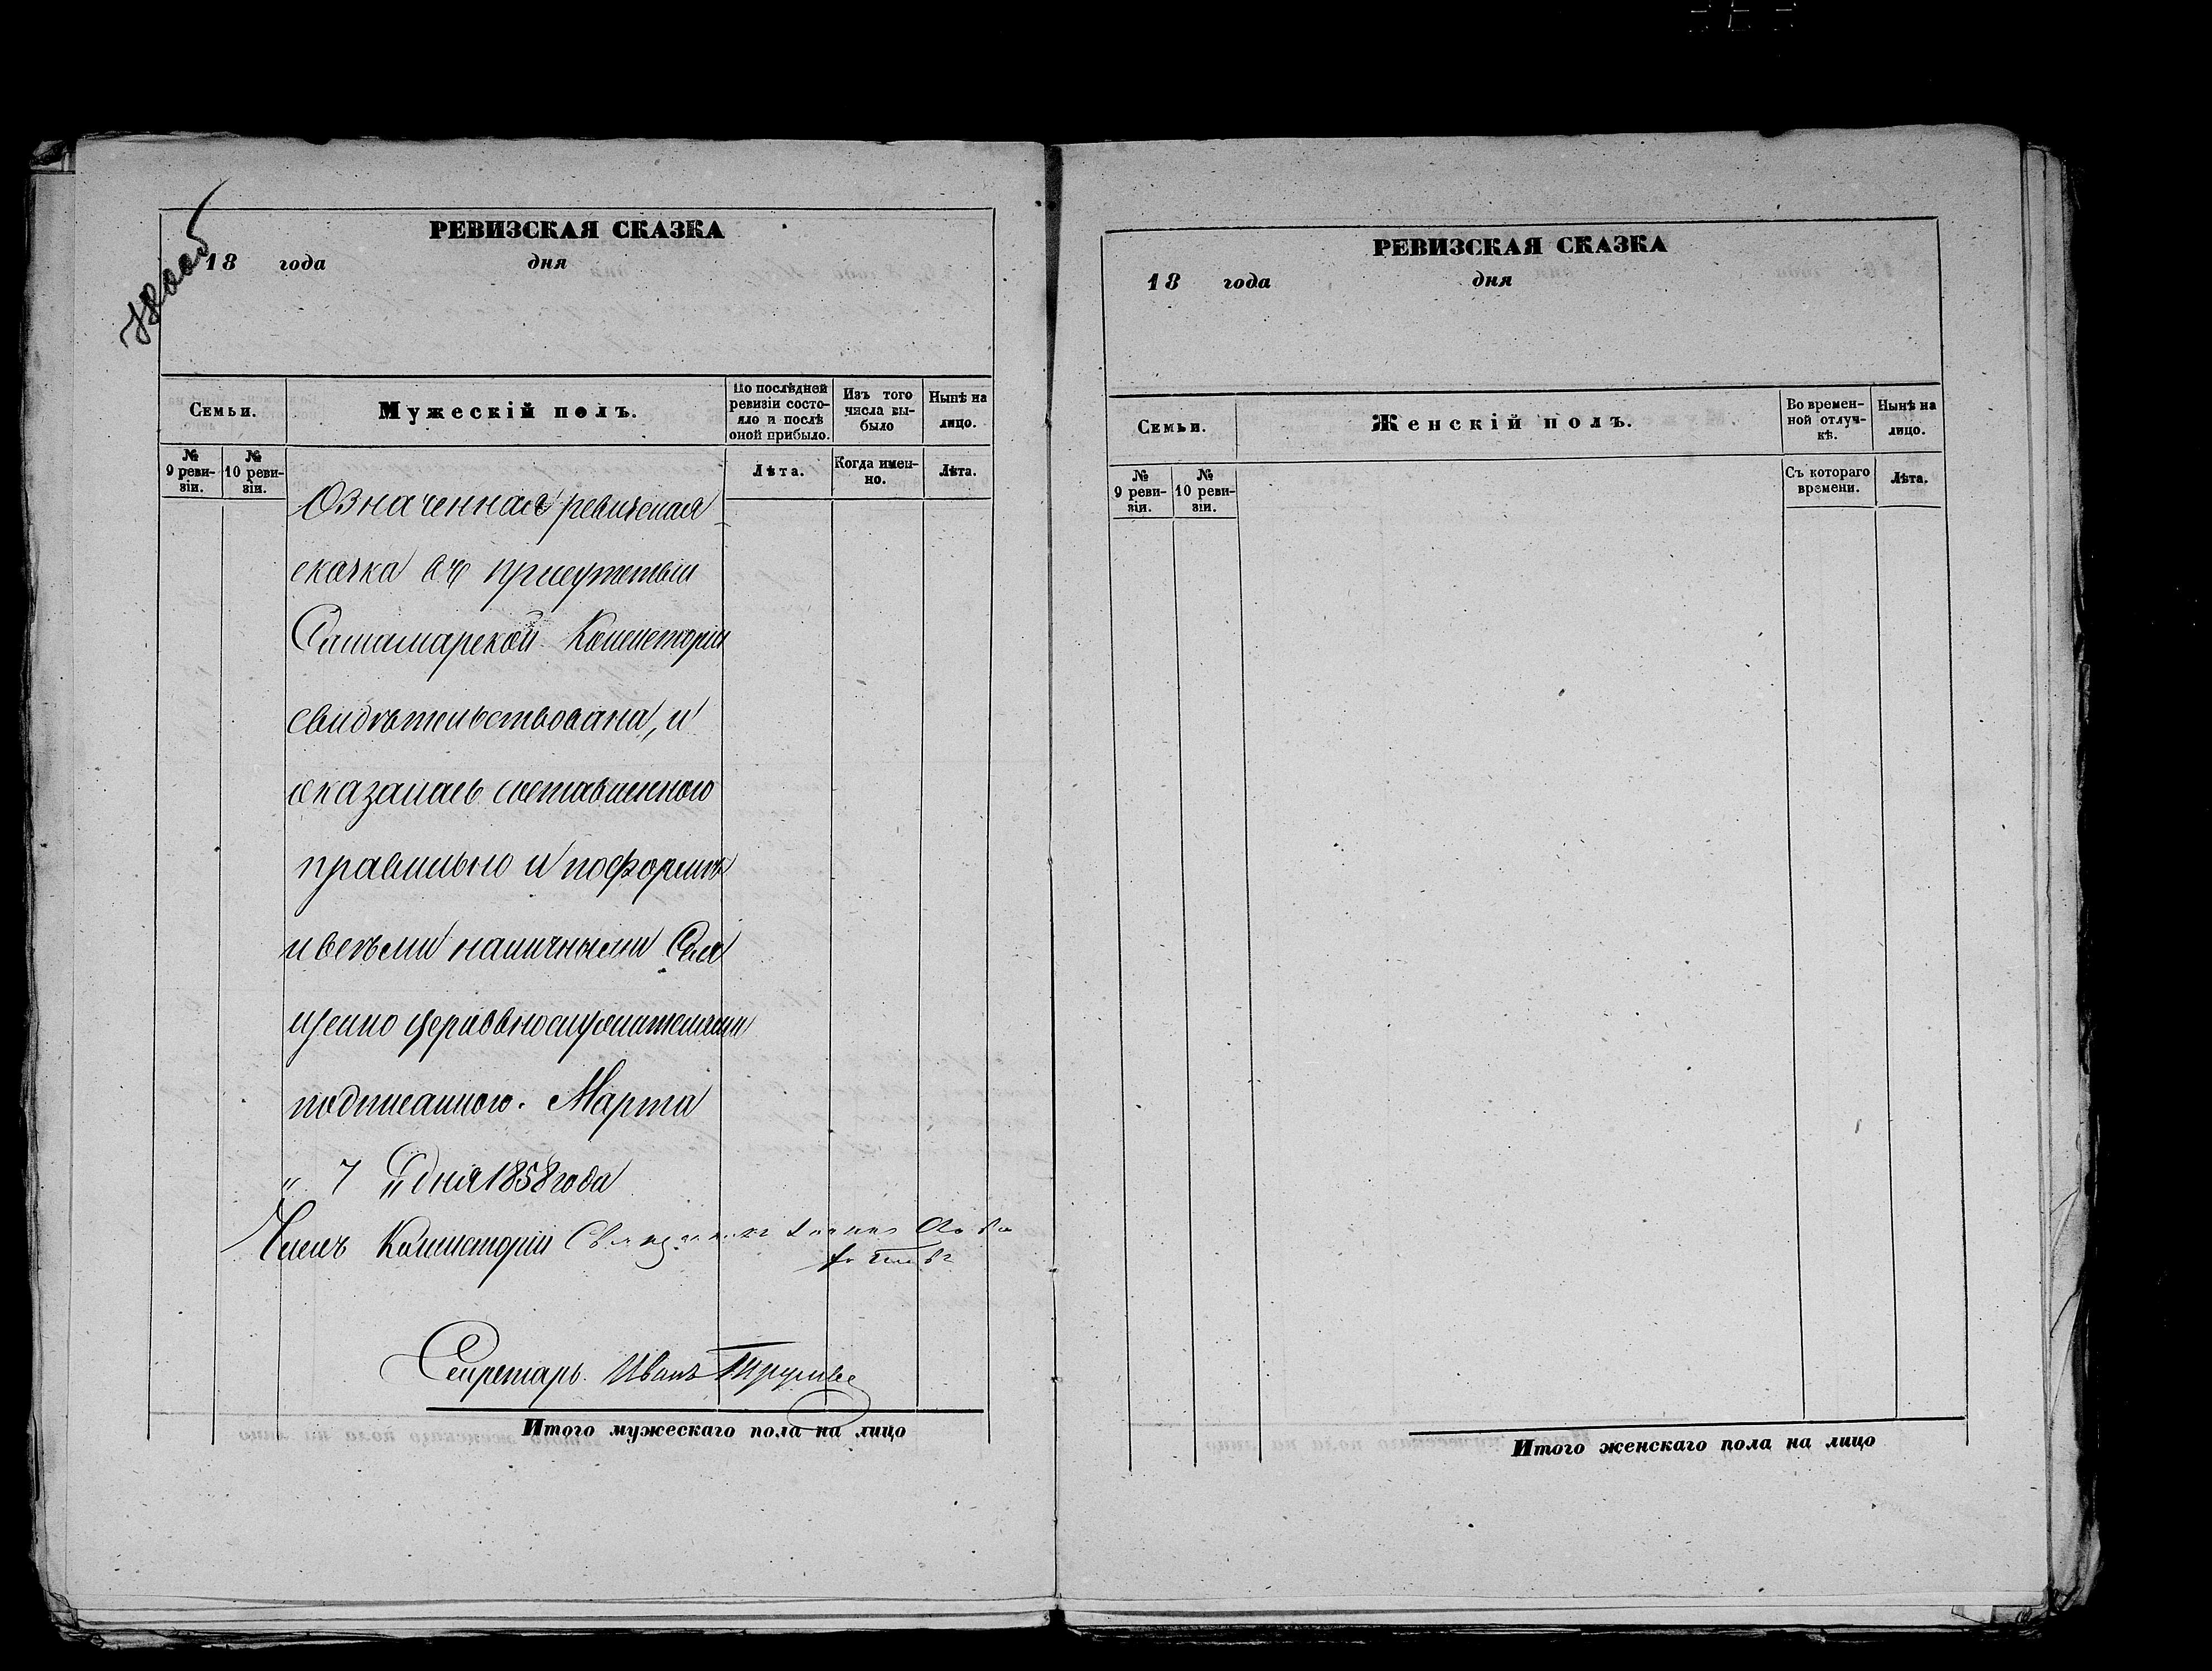 РЕВИЗСКАЯ СКАЗКА
18 года дня
Семьи.
Мужескій полъ.
По послѣдней ревизіи состо-
яло и послѣ оной прибыло.
Изъ того числа вы-
было
Нынѣ на лицо.
№ 9 реви-
зіи.
№ 10 реви-
зіи.
Лѣта.
Когда имен-
но.
Лѣта.
Означенная ревизская
сказка въ присутствіи
Консисторіи
свидѣтельствована, и
оказалась составленною
правильно и по формѣ
и всѣми наличными Свя
щенно церковнослужителями
подписанною. Марта
„ 7 „ дня 1858 года
Членъ Консисторіи Священникъ
Секретарь Иванъ
Итого мужескаго пола на лицо
РЕВИЗСКАЯ СКАЗКА
18 года дня
Семьи.
Женскій полъ.
Во времен-
ной отлуч-
кѣ.
Нынѣ на лицо.
№ 9 реви-
зіи.
№ 10 реви-
зіи.
Съ котораго времени.
Лѣта.
Итого женскаго пола на лицо